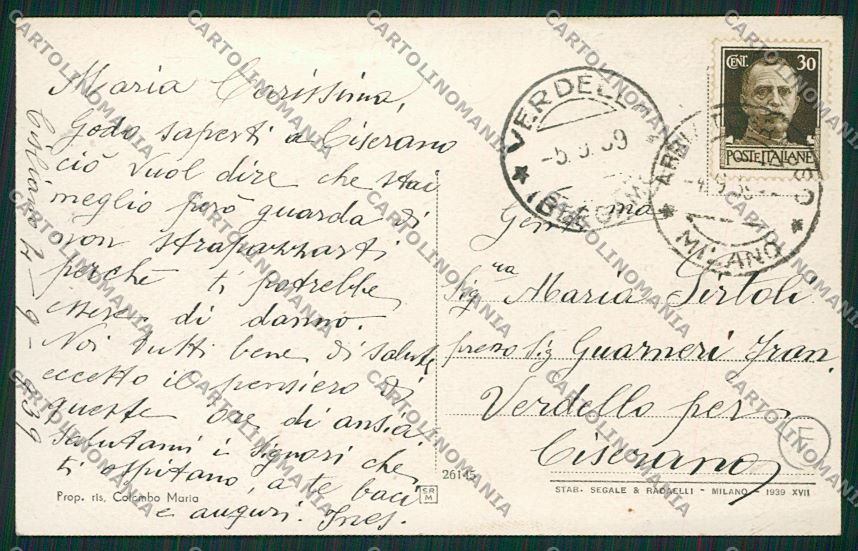 Maria Carissima,
Godo saperti a Ciserano
ciò vuol dire che stai
meglio però guarda di
non strapazzarti
perchè ti potrebbe
essere di danno.
Noi tutti bene di salute
eccetto il pensiero di
queste ore di ansia.
Salutami i Signori che
ti ospitano, a te baci
e auguri. Ines.
Cisliano 4-9-939
Prop. ris. Colombo Maria
SR
M
26145
CENT. 30
POSTE ITALIANE
VERDELL
-5.9.39
MILANO
Gen ma
Sig ra Maria Pirtoli
presso Sig Guarneri Fran.
Verdello per
Ciserano
STAB. SEGALE & RADAELLI - MILANO - 1939 XVII
CARTOLINOMANIA